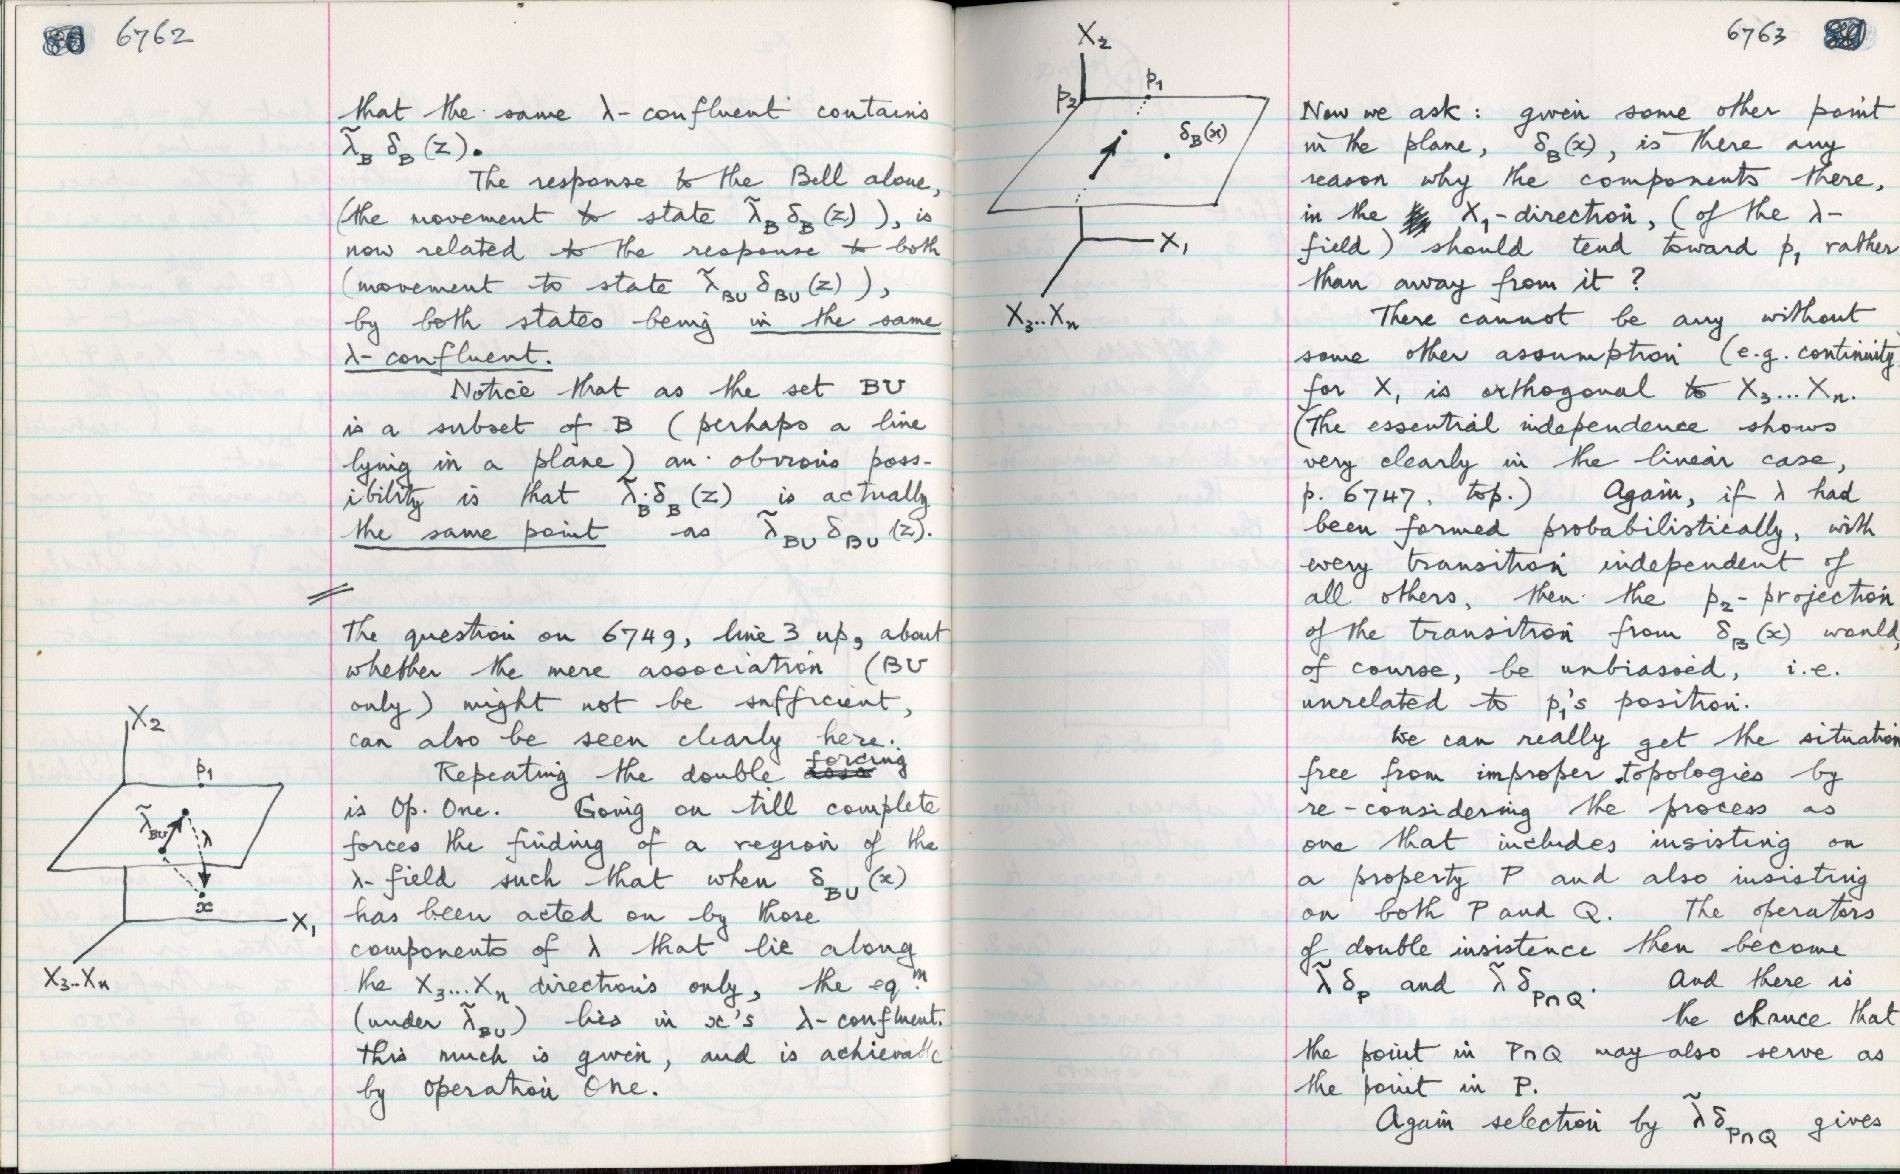 6762
that the same λ-confluent contains
λ̃_B δ_B (z).
The response to the Bell alone,
(the movement to state λ̃_B δ_B (z) ), is
now related to the response to both
(movement to state λ̃_BU δ_BU (z) ),
by both states being in the same
λ-confluent.
Notice that as the set BU
is a subset of B (perhaps a line
lying in a plane) an obvious poss-
ibility is that λ̃_B δ_B (z) is actually
the same point as λ̃_BU δ_BU (z).
The question on 6749, line 3 up, about
whether the mere association (BU
only) might not be sufficient,
can also be seen clearly here.
Repeating the double forcing
is Op. One. Going on till complete
forces the finding of a region of the
λ-field such that when δ_BU (x)
has been acted on by those
components of λ that lie along
the X₃...Xₙ directions only, the eqᵐ
(under λ̃_BU) lies in x's λ-confluent.
This much is given, and is achievable
by operation One.
X₂
p₁
λ̃_BU
λ
x
X₁
X₃..Xₙ
6763
X₂
p₁
p₂
δ_B(x)
X₁
X₃..Xₙ
Now we ask: given some other point
in the plane, δ_B(x), is there any
reason why the components there,
in the X₁-direction, (of the λ-
field) should tend toward p₁ rather
than away from it?
There cannot be any without
some other assumption (e.g. continuity)
for X₁ is orthogonal to X₃...Xₙ.
(The essential independence shows
very clearly in the linear case,
p. 6747, top.) Again, if λ had
been formed probabilistically, with
every transition independent of
all others, then the p₂-projection
of the transition from δ_B(x) would,
of course, be unbiassed, i.e.
unrelated to p₁'s position.
We can really get the situation
free from improper topologies by
re-considering the process as
one that includes insisting on
a property P and also insisting
on both P and Q. The operators
of double insistence then become
λ̃δ_P and λ̃δ_P∩Q. And there is
the chance that
the point in P∩Q may also serve as
the point in P.
Again selection by λ̃δ_P∩Q gives